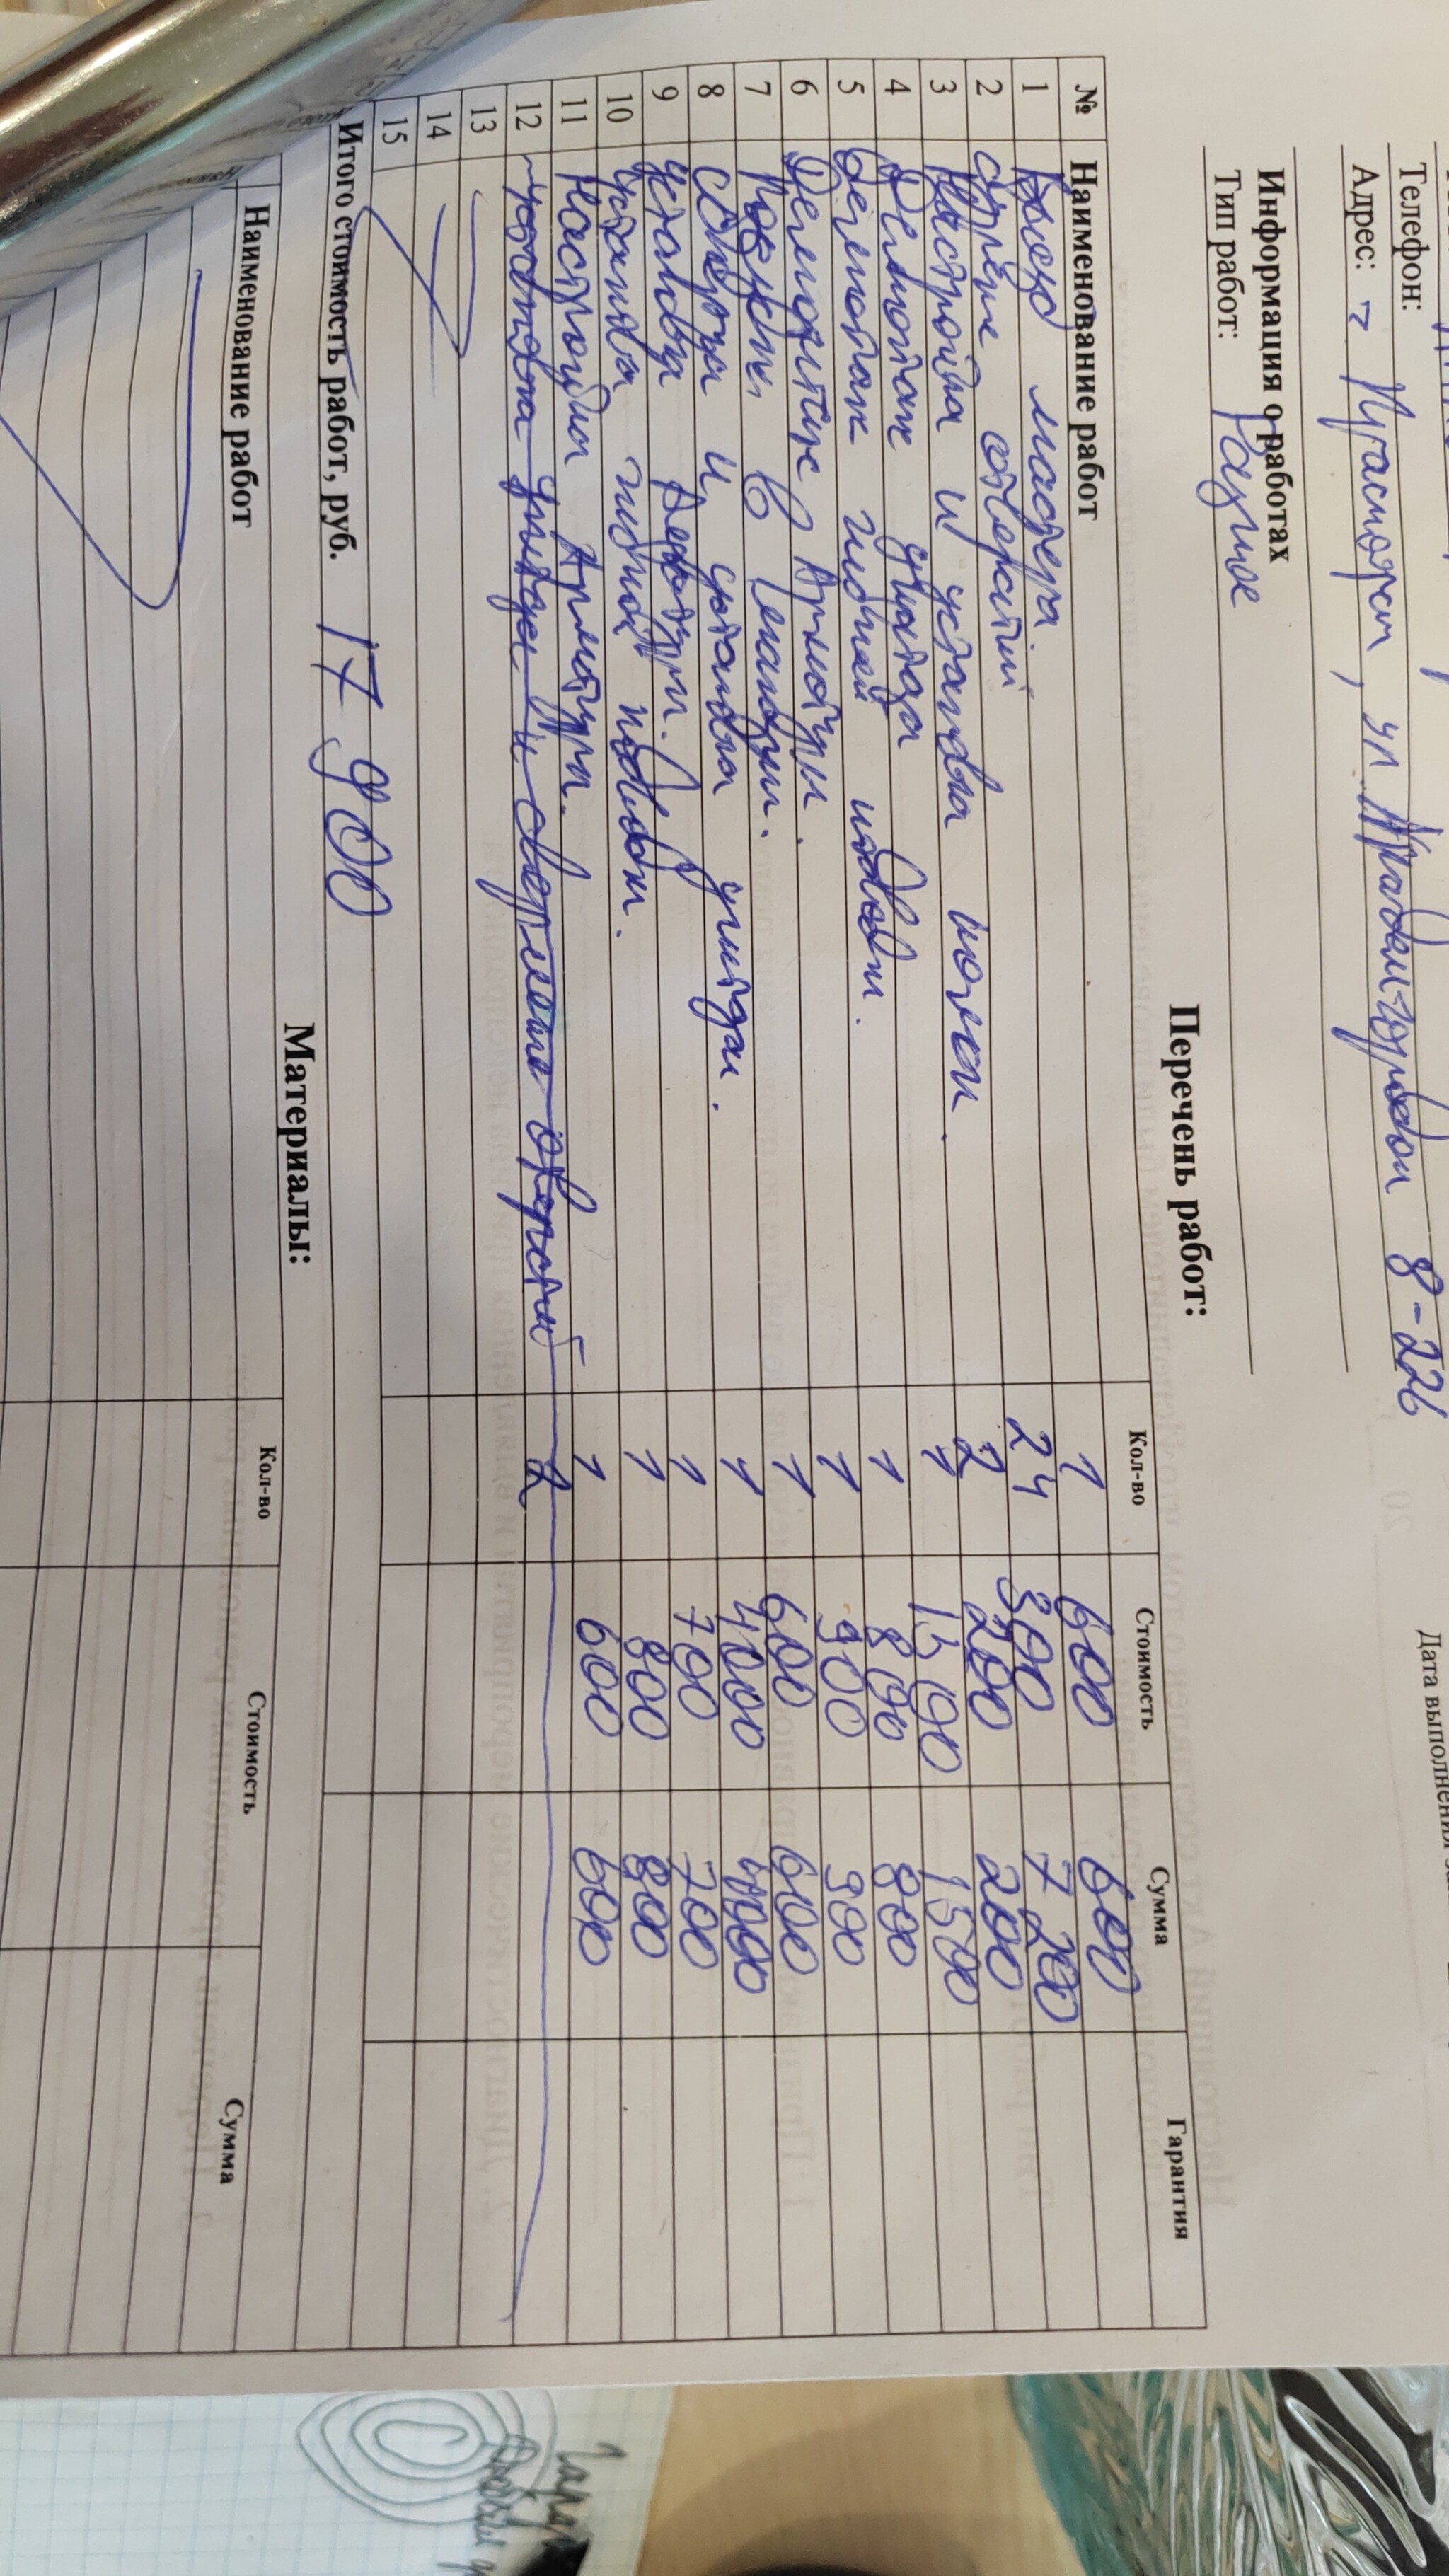 Дата выполнения за
Телефон:
Адрес: г Красногорск, ул 8-226
Информация о работах
Тип работ: Разное
Перечень работ:
№ Наименование работ Кол-во Стоимость Сумма Гарантия
1 Выезд мастера 1 600 600
2 отверстий 24 300 7 200
3 и установка 2 200 200
4 Демонтаж унитаза 1 1500 1500
5 Демонтаж гибкой подводки. 1 800 800
6 Демонтаж Арматуры. 1 900 900
7 1 600 600
8 Сборка и установка унитаза. 1 4000 4000
9 Установка Арматуры. 1 700 700
10 Установка гибкой подводки. 1 800 800
11 Настройка Арматуры. 1 600 600
12 установка унитаза и сверление отверстий 2
13
14
15
Итого стоимость работ, руб. 17 900
Материалы:
Наименование работ Кол-во Стоимость Сумма